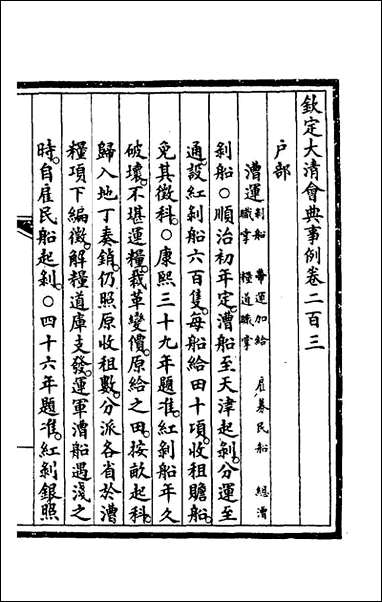 欽定大清會典事例卷二百三
戶部
漕運剝船 帶運加給 雇募民船 總漕職掌 糧道職掌
剝船○順治初年定。漕船至天津起剝。分運至
通。設紅剝船六百隻。每船給田十頃。收租贍船。
免其徵科。○康熙三十九年題准。紅剝船年久
破壞。不堪運糧。裁革變價。原給之田。按畝起科。
歸入地丁奏銷。仍照原收租數。分派各省於漕
糧項下編徵。解糧道庫支發。運軍漕船遇淺之
時。自雇民船起剝。○四十六年題准。紅剝銀照